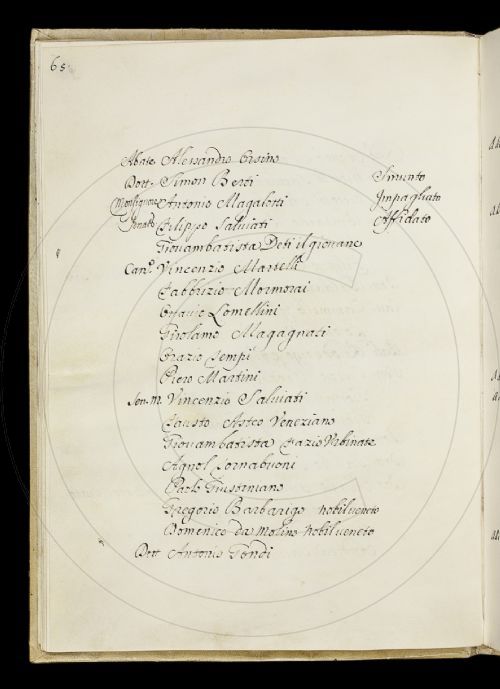 65
Abate Alessandro Orsino
Dott. Simon Berti Smunto
Monsignore Antonio Magalotti Impagliato
Senat. Filippo Salviati Affidato
Giouambatista Deti il giouane
Can.º Vincenzio Martelli
Fabbrizio Mormorai
Ottauio Lomellini
Girolamo Magagnati
Orazio Sempi
Piero Martini
Vincenzio Saluiati
Fausto Asteo Veneziano
Giouambatista Fazio Vrbinate
Agnol Tornabuoni
Paolo Giustiniano
Gregorio Barbarigo nobil ueneto
Domenico da Molino nobil ueneto
Dott. Antonio Gondi